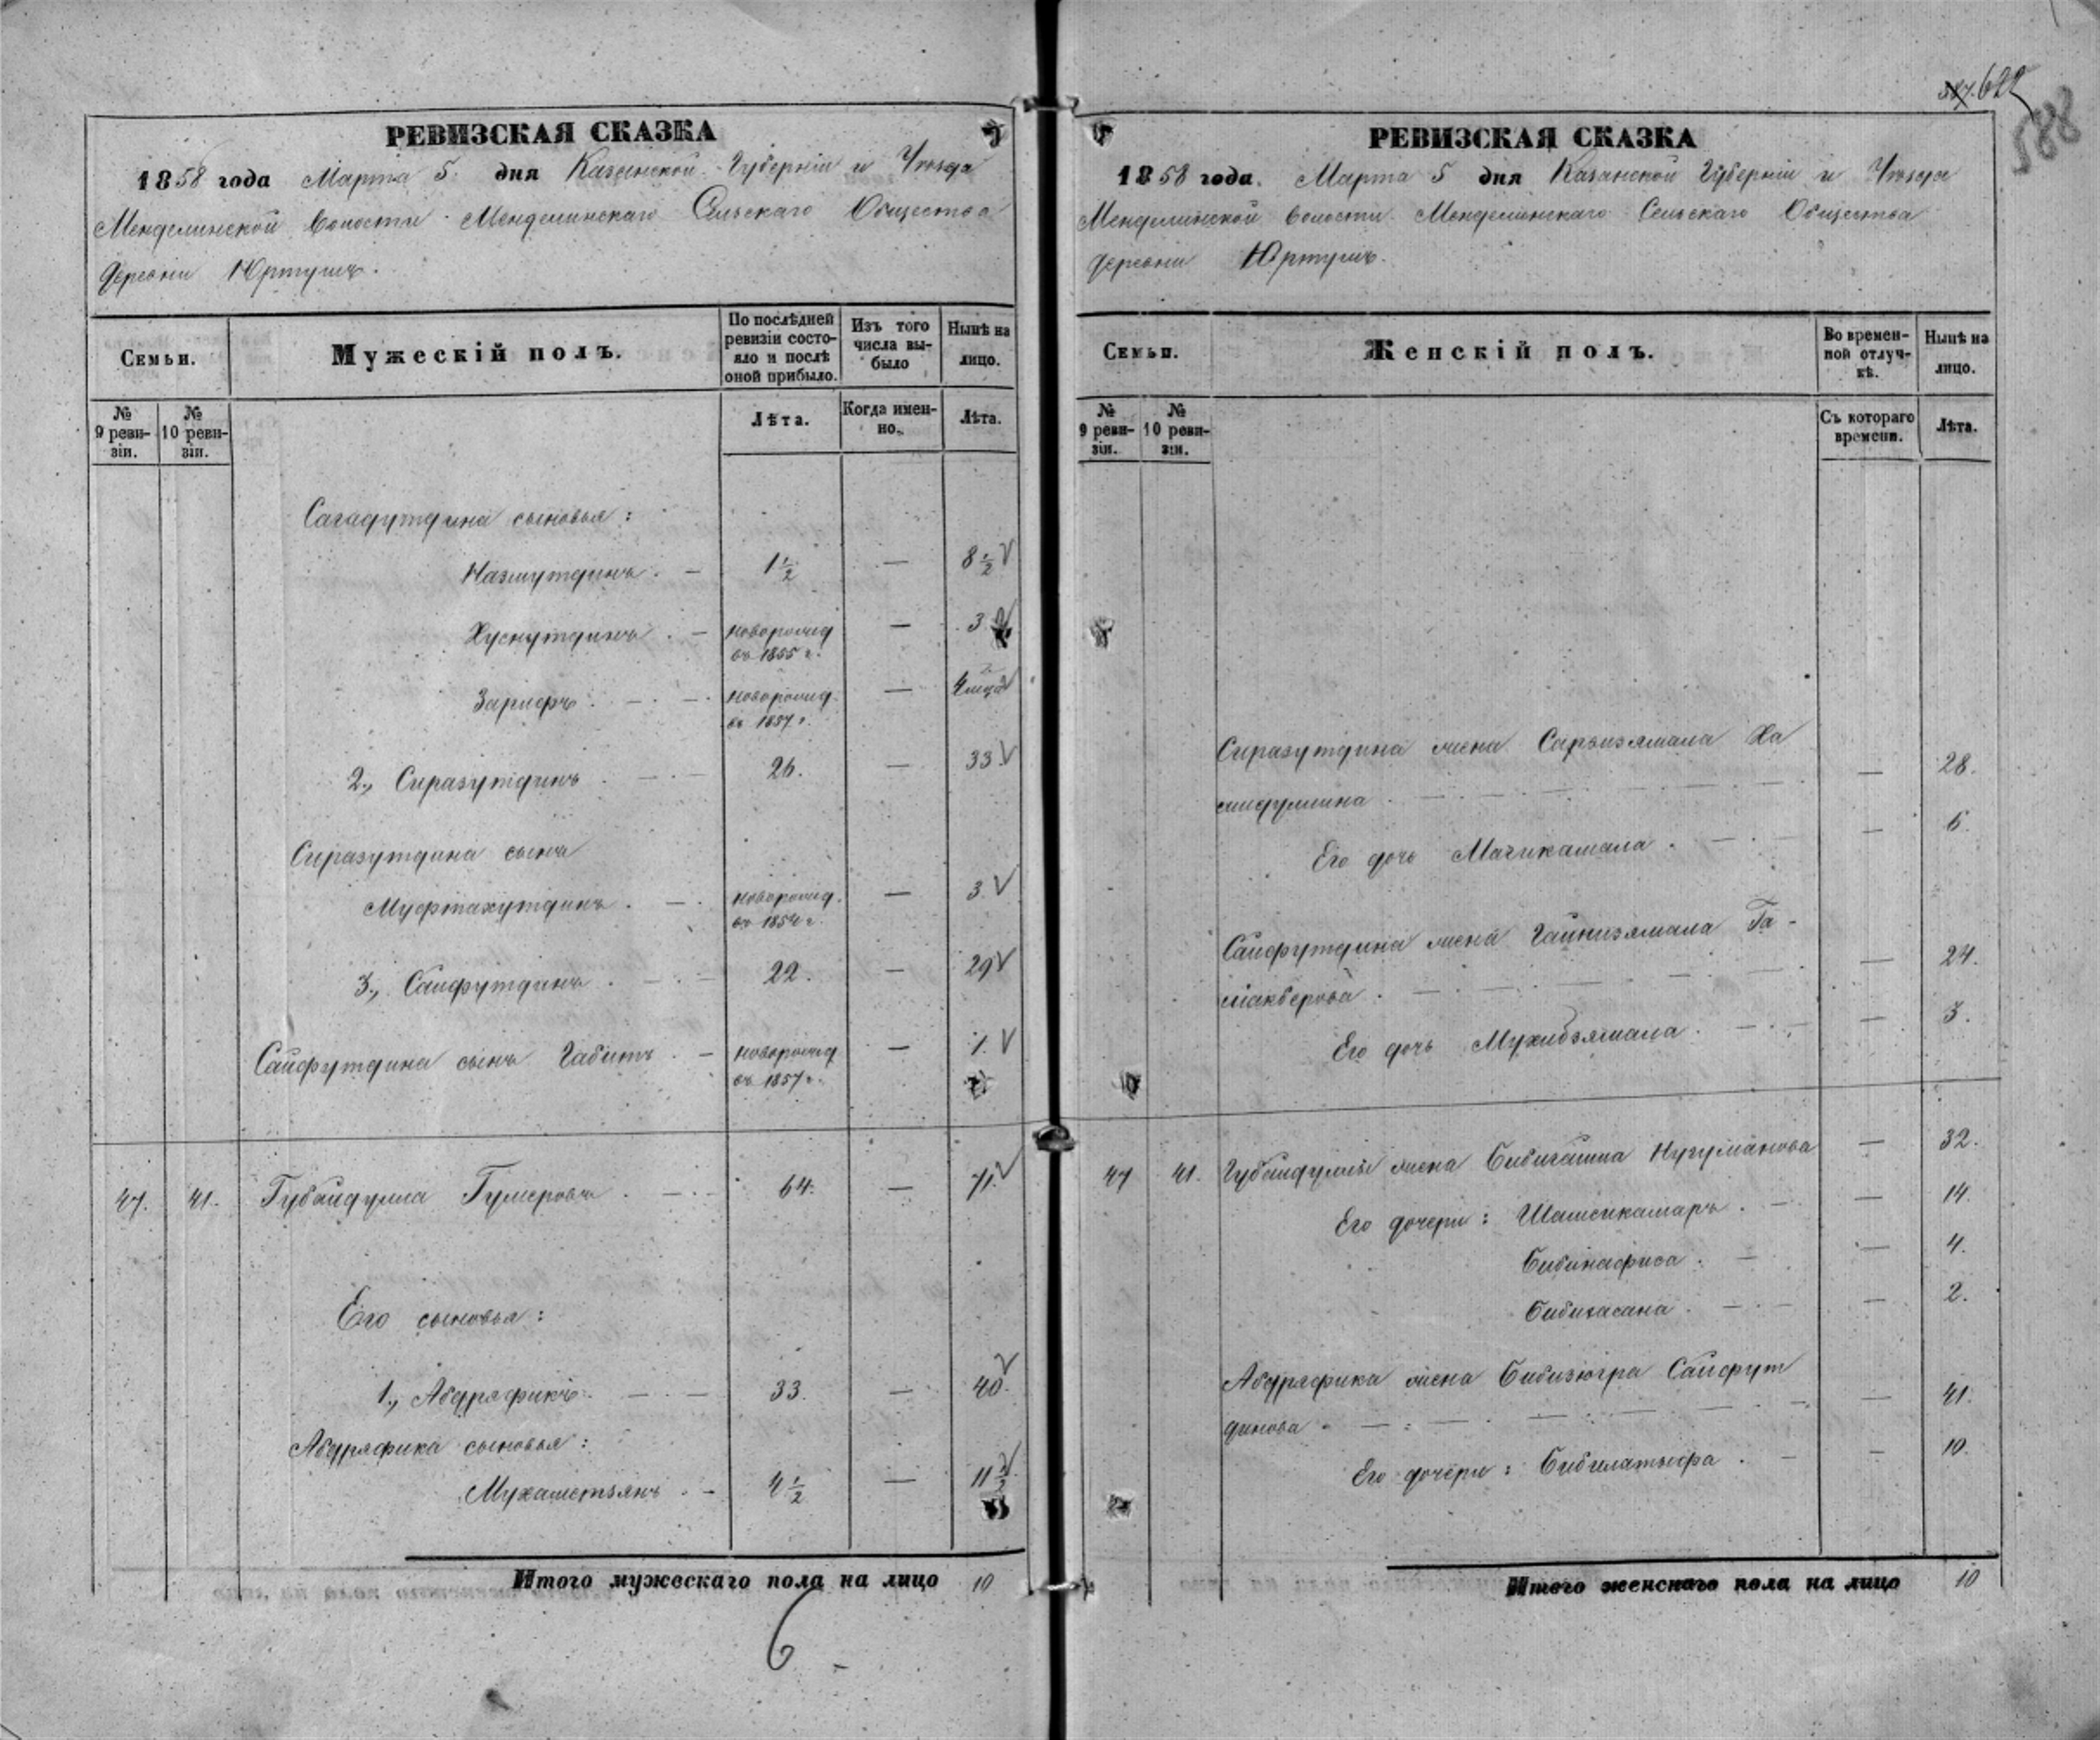 587. 622
588
РЕВИЗСКАЯ СКАЗКА
1858 года Марта 5. дня Казанской Губерніи и Уѣзда
Менделинской волости Менделинскаго Сельскаго Общества
деревни Юртушъ.
Семьи.
Мужескій полъ.
По послѣдней ревизіи состояло и послѣ оной прибыло.
Изъ того числа выбыло
Нынѣ на лицо.
№ 9 ревизіи.
№ 10 ревизіи.
Лѣта.
Когда именно.
Лѣта.
Сагадутдина сыновья:
Назмутдинъ. — 1 1/2 — 8 1/2
Хуснутдинъ. — новорожд въ 1855 г. — 3
Зарифъ. — новорожд. въ 1857 г. — 4 мѣц
2., Сиразутдинъ 26. — 33
Сиразутдина сынъ
Муфтахутдинъ. — новорожд. въ 1854 г. — 3.
3., Сайфутдинъ. 22. — 29
Сайфутдина сынъ Габитъ. — новорожд въ 1857 г. — 1.
47. 41. Губайдулла Гумеровъ. — 64. — 71.
Его сыновья:
1., Абдряфикъ. — 33. — 40.
Абдряфика сыновья:
Мухаметзянъ. — 4 1/2 — 11 1/2
Итого мужескаго пола на лицо 10
6
РЕВИЗСКАЯ СКАЗКА
1858 года. Марта 5 дня Казанской Губерніи и Уѣзда
Менделинской волости Менделинскаго Сельскаго Общества
деревни Юртушъ.
Семьи.
Женскій полъ.
Во временной отлучкѣ.
Нынѣ на лицо.
№ 9 ревизіи.
№ 10 ревизіи.
Съ котораго времени.
Лѣта.
Сиразутдина жена Сарвизямала Ха
мидуллина. — 28.
Его дочь Магикамала. — 6.
Сайфутдина жена Гайнизямала Га-
лиакберова. — 24.
Его дочь Мухибзямала. — 3.
47 41. Губайдуллы жена Бибигайша Нугуманова — 32.
Его дочери: Шамсикамаръ. — 14.
Бибинафиса. — 4.
Бибихасана. — 2.
Абдряфика жена Бибизюгра Сайфут
динова — 41.
Его дочери: Бибилатыфа. — 10.
Итого женскаго пола на лицо 10